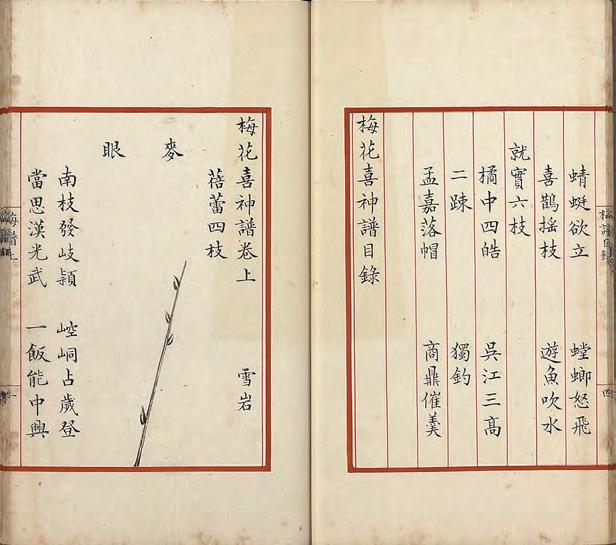 蜻蜓欲立 螳螂怒飛
喜鵲搖枝 遊魚吹水
就實六枝
橘中四皓 吳江三高
二疎 獨釣
孟嘉落帽 商鼎催羹
梅花喜神譜目錄
梅花喜神譜卷上 雪岩
蓓蕾四枝
麥眼
南枝發岐穎 崆峒占歲登
當思漢光武 一飯能中興